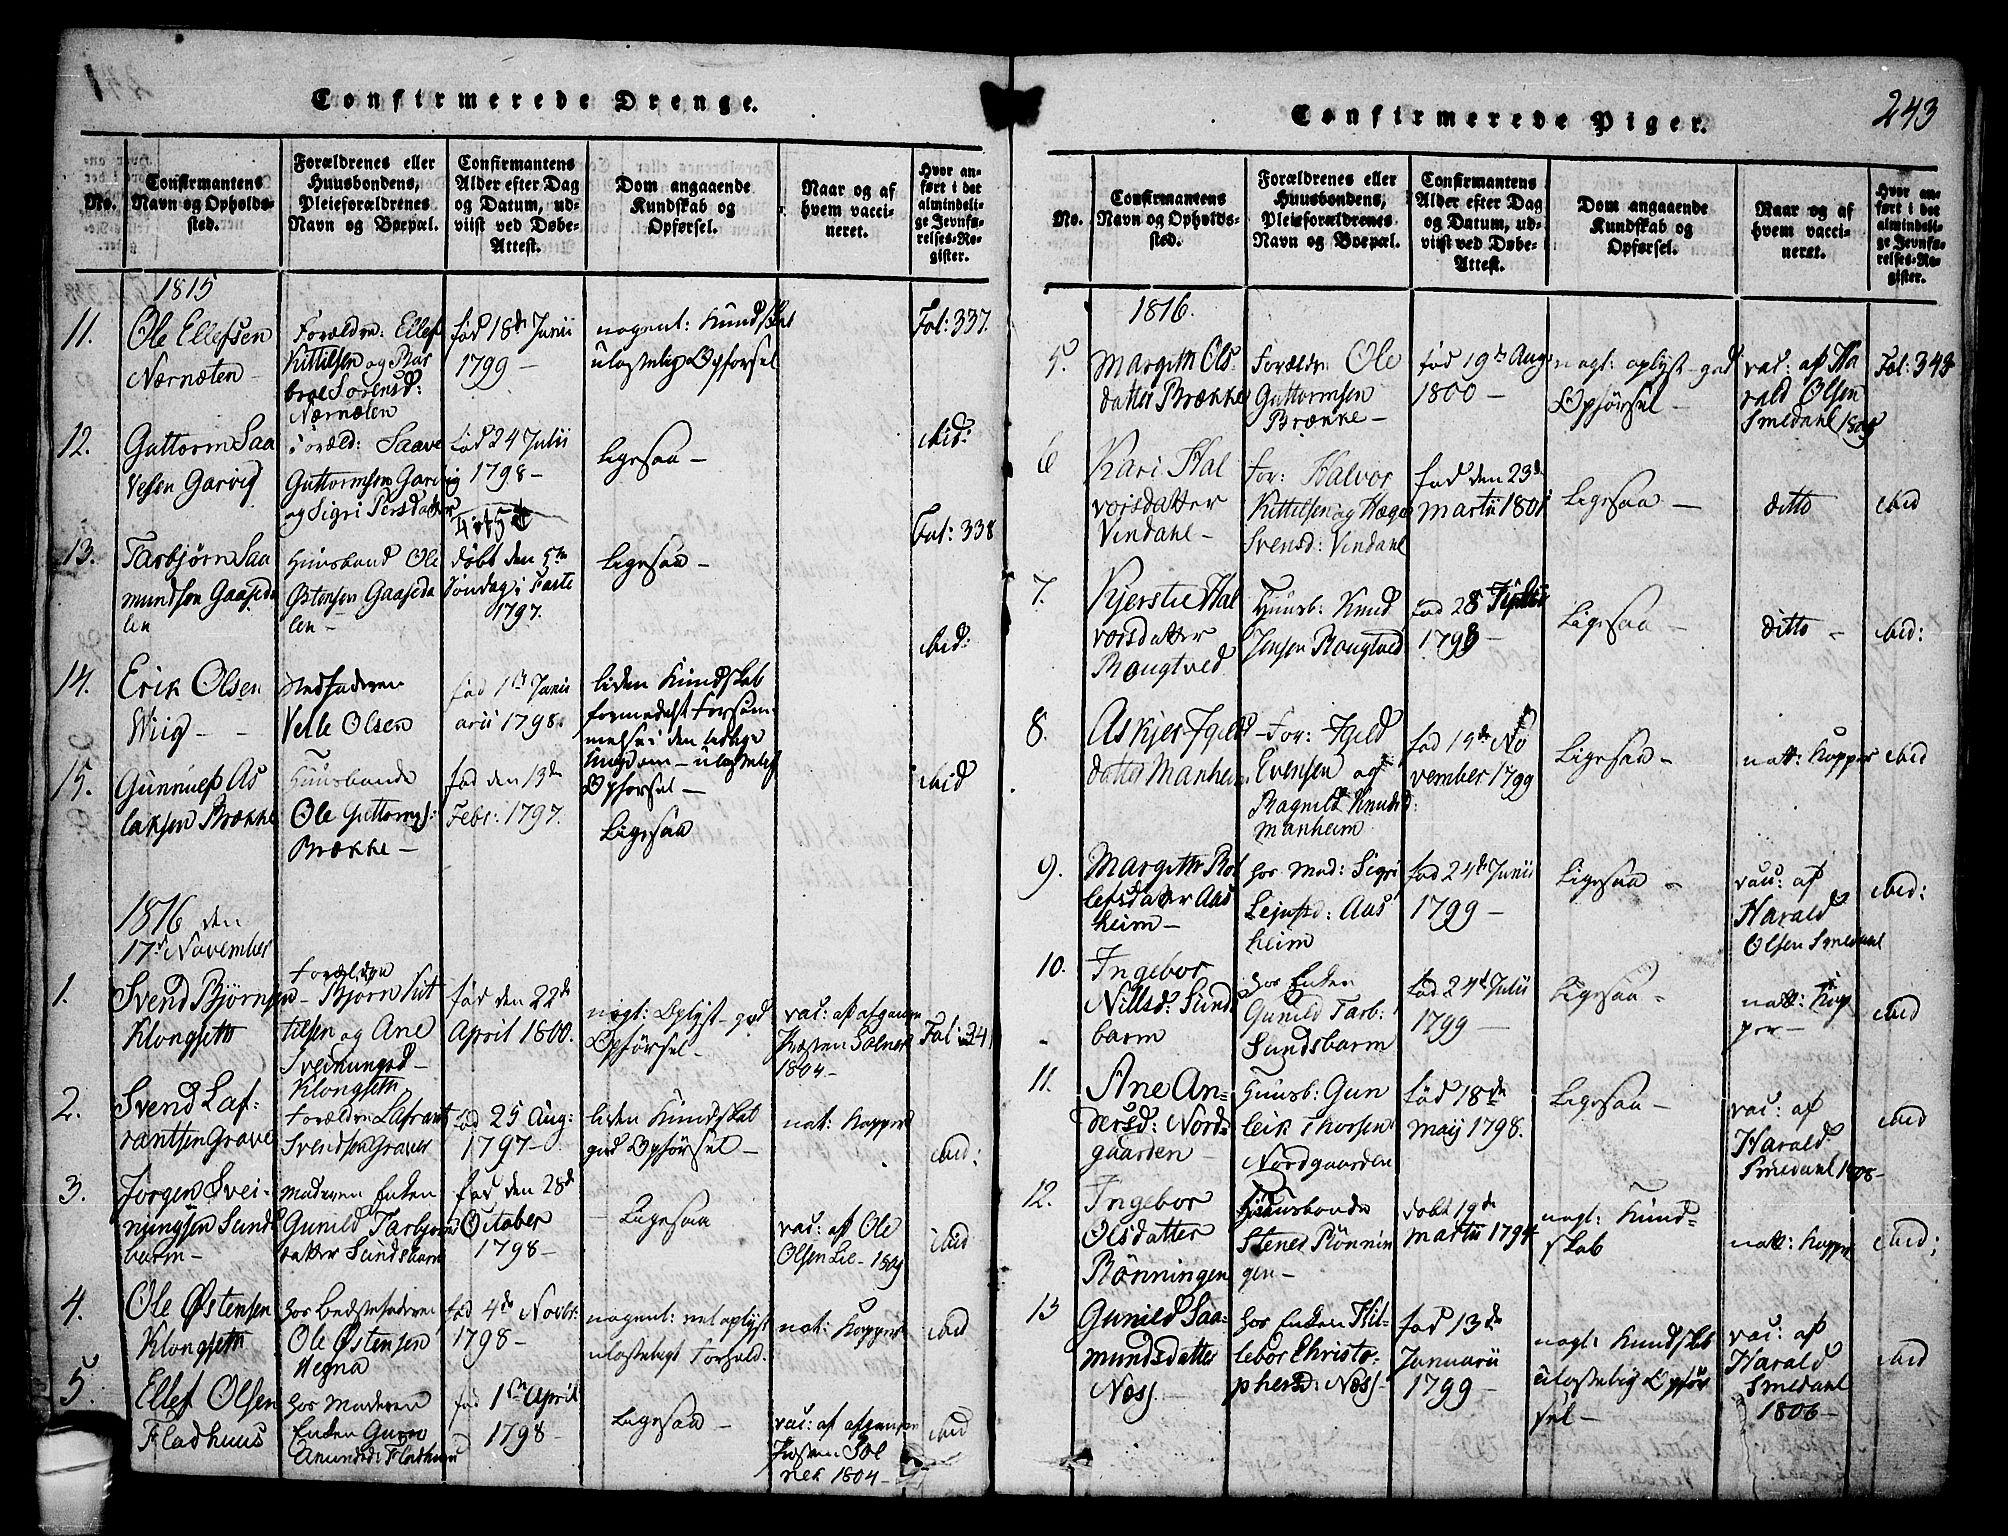 Confirmerede Drenge.
No.
Confirmantens
Navn og Opholds-
sted.
Forældrenes eller
Huusbondens,
Pleieforældrenes
Navn og Boepæl.
Confirmantens
Alder efter Dag
og Datum, ud-
viist ved Døbe-
Attest.
Dom angaaende
Kundskab og
Opførsel.
Naar og af
hvem vacci-
neret.
Hvor an-
ført i det
almindeli-
ge Jevnfø-
relses-Re-
gister.
1815
11.
Ole Ellefsen
Nærnæten
Forældre: Ellef
Kittilsen og Bar
broe Sorensd:
Nærnæten
fød 18de Junii
1799 -
nogenl: Kundskab
ulastelig Opførsel
Fol: 337.
12.
Guttorm Saa
vesen Garvig
Foræld: Saave
Guttormsen Garvig
og Sigri Persdatter
fød 24 Julii
1798 -
Ligesaa -
ibid:
13.
Tarbjørn Saa
mundsøn Gaaseda
len
Huusbond Ole
Østensen Gaaseda
len -
døbt den 5te
Søndag i Faste
1797.
Ligesaa -
Fol: 338
14.
Erik Olsen
Wiig - -
Stedfaderen
Vetle Olsen
fød 1ste Janu
arii 1798.
liden Kundskab
formedelst Forsøm
melse i den tidlige
Ungdom - ulastelig
Opførsel -
ibid:
15.
Gunnulf As
laksen Brække
Huusbonde
Ole Guttorms:
Brække -
fød den 13de
Febr: 1797.
Ligesaa
ibid
1816 den
17de November
1.
Svend Bjørnsen
Klongseth
Forældre
- Bjørn Kit
tilsen og Ane
Sveinungsd -
Klongseth
fød den 22de
April 1800.
nogl: Oplyst - god
Opførsel -
vac: af afgangne
Præsten Solner
1804 -
Fol: 341
2.
Svend Laf-
rantsen Grave
Forældre Lafrants
Svendsen Graver
fød 25 Aug:
1797 -
liden Kundskab
god Opførsel -
nat: Kopper
ibid:
3.
Jørgen Svei-
nungsen Sunds
barm -
Moderen Enken
Gunild Tarbjørns
datter Sundsbarm
fød den 28de
October
1798 -
- Ligesaa
vac: af Ole
Olsen Lie - 1809
ibid
4.
Ole Østensen
Klongseth
hos Bedstefaderen
Ole Østensen
Hegna
fød 4de Novbr:
1798 -
nogenl: vel oplyst
ulasteligt Forhold.
nat: Kopper
ibid
5
Ellef Olsen
Fladhuus
hos Moderen
Enken Guro
Amundsd: Fladhuus
fød 1ste April
1798 -
Ligesaa -
vac: af afgangne
Præsten Sol
ner 1804 -
ibid
Confirmerede Piger.
243
No.
Confirmantens
Navn og Opholds-
sted.
Forældrenes eller
Huusbondens,
Pleieforældrenes
Navn og Boepæl.
Confirmantens
Alder efter Dag
og Datum, ud-
viist ved Døbe-
Attest.
Dom angaaende
Kundskab og
Opførsel.
Naar og af
hvem vacci-
neret.
Hvor an-
ført i det
almindeli-
ge Jevnfø-
relses-Re-
gister.
1816.
5.
Margith Ols-
datter Brække
Forældr: Ole
Guttormsen
Brække -
fød 19de Aug:
1800 -
nogl: oplyst - god
Opførsel -
vac: af Ha
rald Olsen
Smedahl 1809
Fol: 343
6
Kari Hal
vorsdatter
Vindahl -
For: Halvor
Kittilsen og Hæge
Svensd: Vindahl
fød den 23de
Martii 1801
Ligesaa -
ditto
ibid
7.
Kjerstie Hal
vorsdatter
Raugtved
Huusb: Knud
Jensen Raugtved
fød 28
Ligesaa -
ditto -
ibid:
8.
Askjer Igeld
datter Manheim
- For: Igeld
Evensen og
Ragnild Knudsd:
Manheim
fød 19de No
vember 1799
Ligesaa -
natt: Kopper
ibid
9.
Margith Rol
lefsdatter Aas
heim -
hos Mod: Sigri
Leifsd: Aas
heim
fød 24de Junii
1799 -
Ligesaa -
vac: af
Harald
Olsen Smedahl
ibid:
10.
Ingebor
Nillsd: Sunds
barm
hos Enken
Gunild Tarb:
Sundsbarm
fød 24de Julii
1799 -
Ligesaa -
natt: Kop
per -
ibid
11.
Ane An-
dersd: Nord-
gaarden -
Huusb: Gun
leik Thorsen
Nordgaarden
fød 18de
Maij 1798.
Ligesaa -
vac: af
Harald
Smedahl 1808 -
ibid
12.
Ingebor
Olsdatter
Rønningen
Huusbonde
Stener Rønnin
gen -
døbt 19de
Martii 1794
nogl: Kund-
skab
natt: Kopper
ibid:
13
Gunild Saa-
mundsdatter
Næss -
hos Enken Hil-
lebor Christo-
phersd: Næss -
fød 13de
Januarii
1799 -
nogl: Kundskab
ulastelig Opfør
sel -
vac: af
Harald
Smedahl
1806 -
ibid